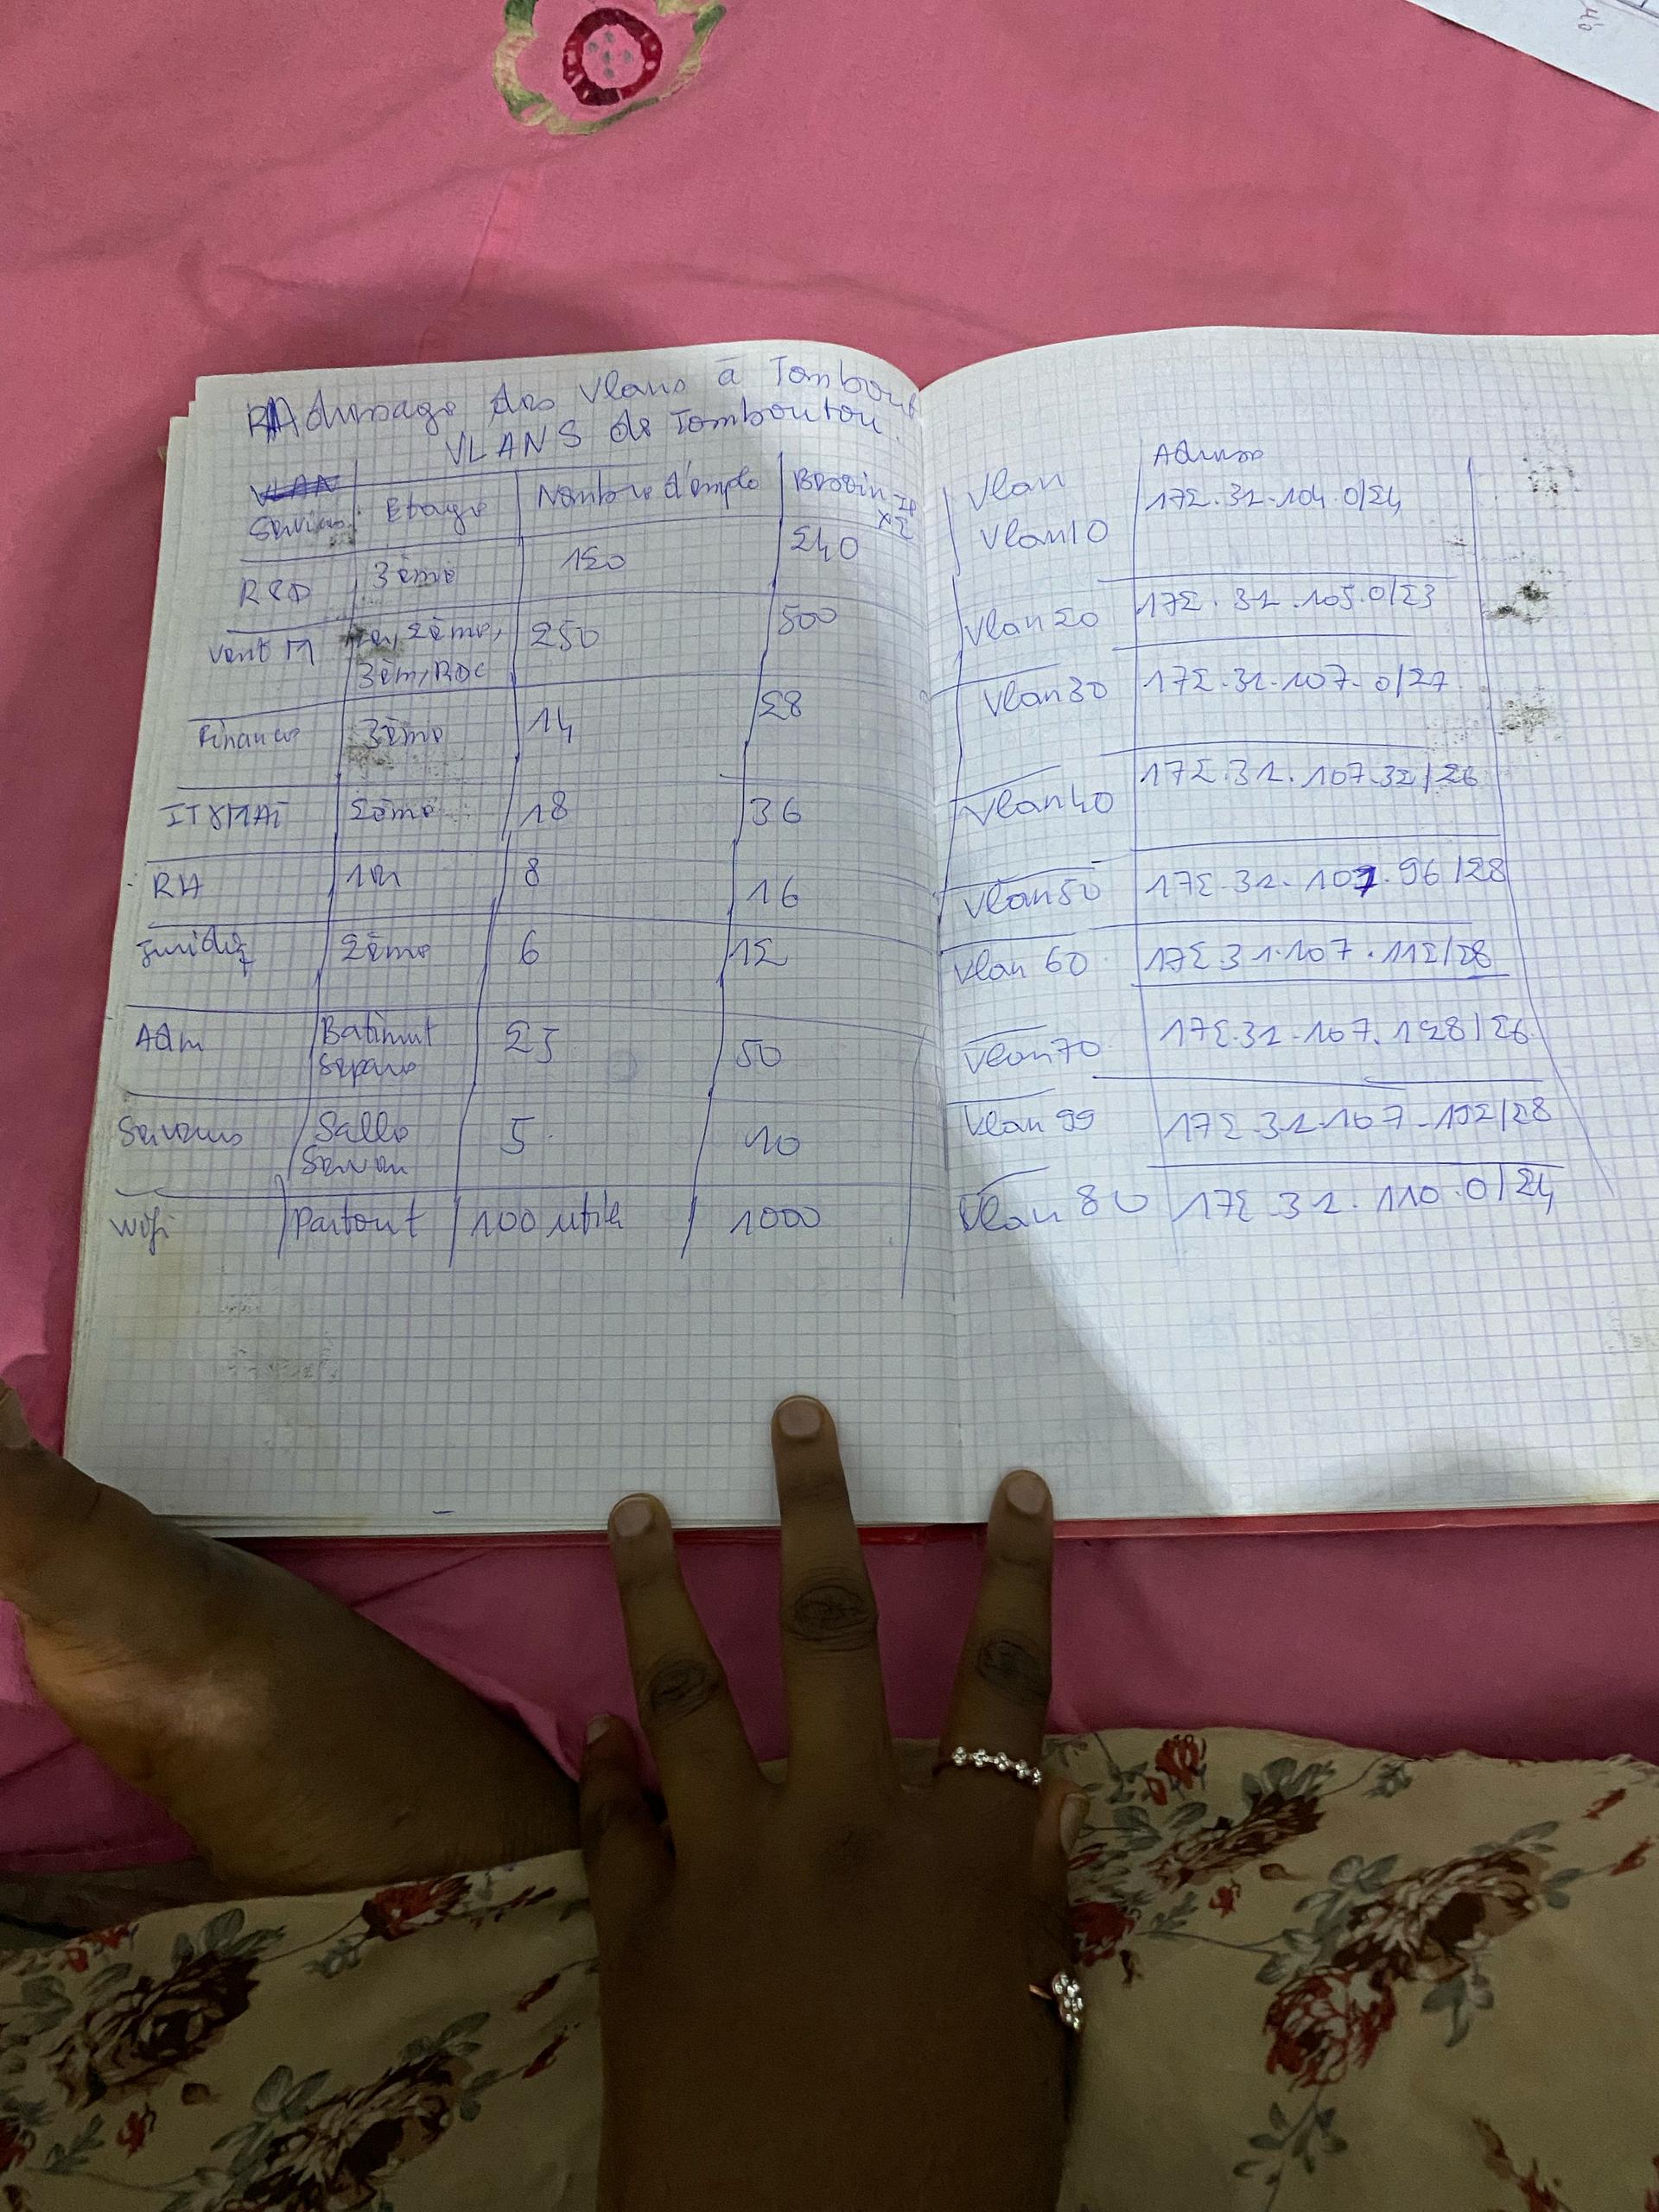 Adressage des Vlans à Tombout
VLANS de Tombouctou.
VLAN
Services Etage Nombre d'emplo Besoin IP x2 Vlan Adresse
R&D 3ème 120 240 Vlan10 172.31.104.0/24
Vent M 1er, 2ème, 3èm, RDC 250 500 Vlan20 172.31.105.0/23
Finance 3ème 14 28 Vlan30 172.31.107.0/27
IT&MAi 2ème 18 36 Vlan40 172.31.107.32/26
RH 1er 8 16 Vlan50 172.31.107.96/28
Juridiq 2ème 6 12 Vlan 60 172.31.107.112/28
Adm Batiment Separe 25 50 Vlan70 172.31.107.128/26
Serveurs Salle Serveu 5 10 Vlan 99 172.31.107.192/28
Wifi Partout 100 utili 1000 Vlan 80 172.31.110.0/24